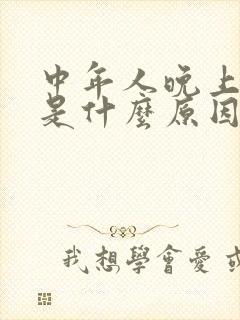 中年人晚上
是什麼原因
我想學會愛或